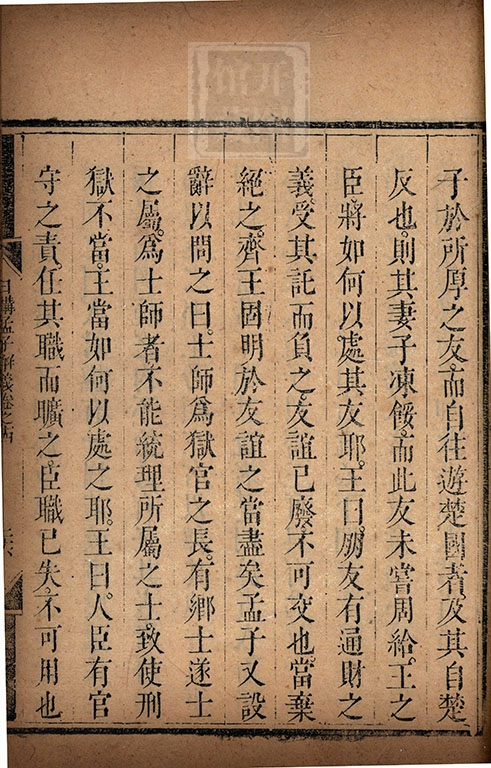 子於所厚之友而自往遊楚國者及其自楚
反也則其妻子凍餒而此友未嘗周給王之
臣將如何以處其友耶王曰朋友有通財之
義受其託而負之友誼已廢不可交也當棄
絕之齊王固明於友誼之當盡矣孟子又設
辭以問之曰士師爲獄官之長有鄉士遂士
之屬爲士師者不能統理所屬之士致使刑
獄不當王當如何以處之耶王曰人臣有官
守之責任其職而曠之臣職已失不可用也
日講孟子解義卷之四